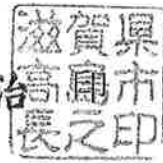 滋賀県
高島市
長之印
治